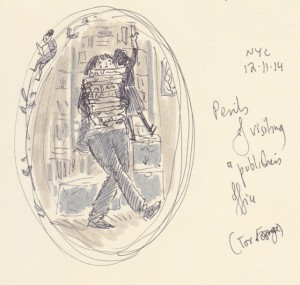 NYC
12-11-14
Perils
of visiting
a publisher's
office
(Tor